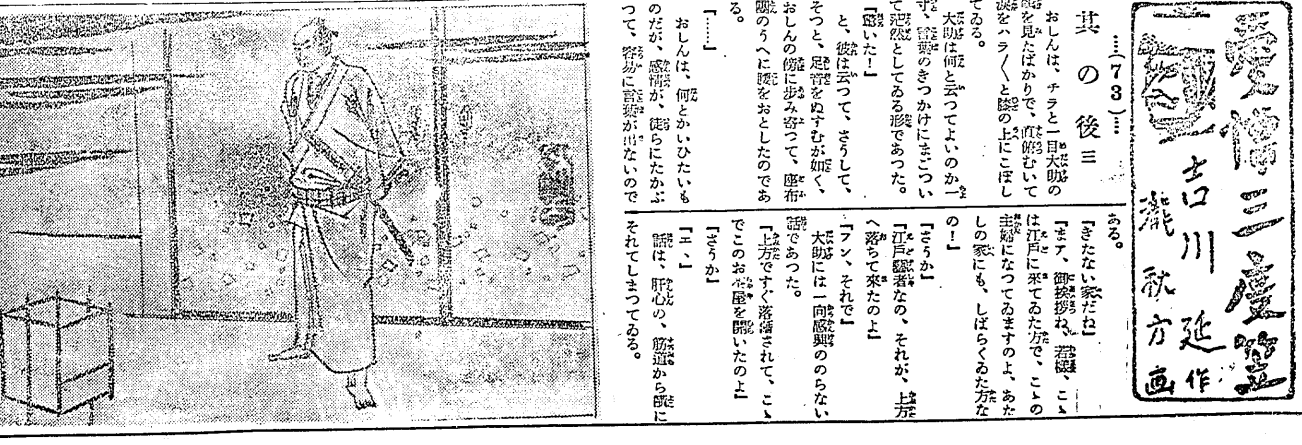 愛憎三度笠
吉川延作
瀧秋方画
……(73)……
其の後三
おしんは、チラと一目大助の
を見たばかりで、直俯むいて
涙をハラ〳〵と膝の上にこぼし
てゐる。
大助は何と云つてよいのか一
寸、言葉のきつかけにまごつい
て茫然としてゐる形であつた。
『驚いた！』
と、彼は云つて、さうして、
そつと、足音をぬすむが如く、
おしんの傍に歩み寄つて、座布
團のうへに腰をおとしたのであ
る。
『……』
おしんは、何とかいひたいも
のだが、感情が、徒らにたかぶ
つて、容易に言葉が出ないので
ある。
『きたない家だね』
『まア、御挨拶ね、若様、こゝ
は江戸に来てゐた方で、こゝの
主婦になつてゐますのよ、あた
しの家にも、しばらくゐた方な
の！』
『さうか』
『江戸藝者なの、それが、上方
へ落ちて来たのよ』
『フン、それで』
大助には一向感興ののらない
話であつた。
『上方ですぐ落籍されて、こゝ
でこのお茶屋を開いたのよ』
『さうか』
『エ、』
話は、肝心の、筋道から既に
それてしまつてゐる。